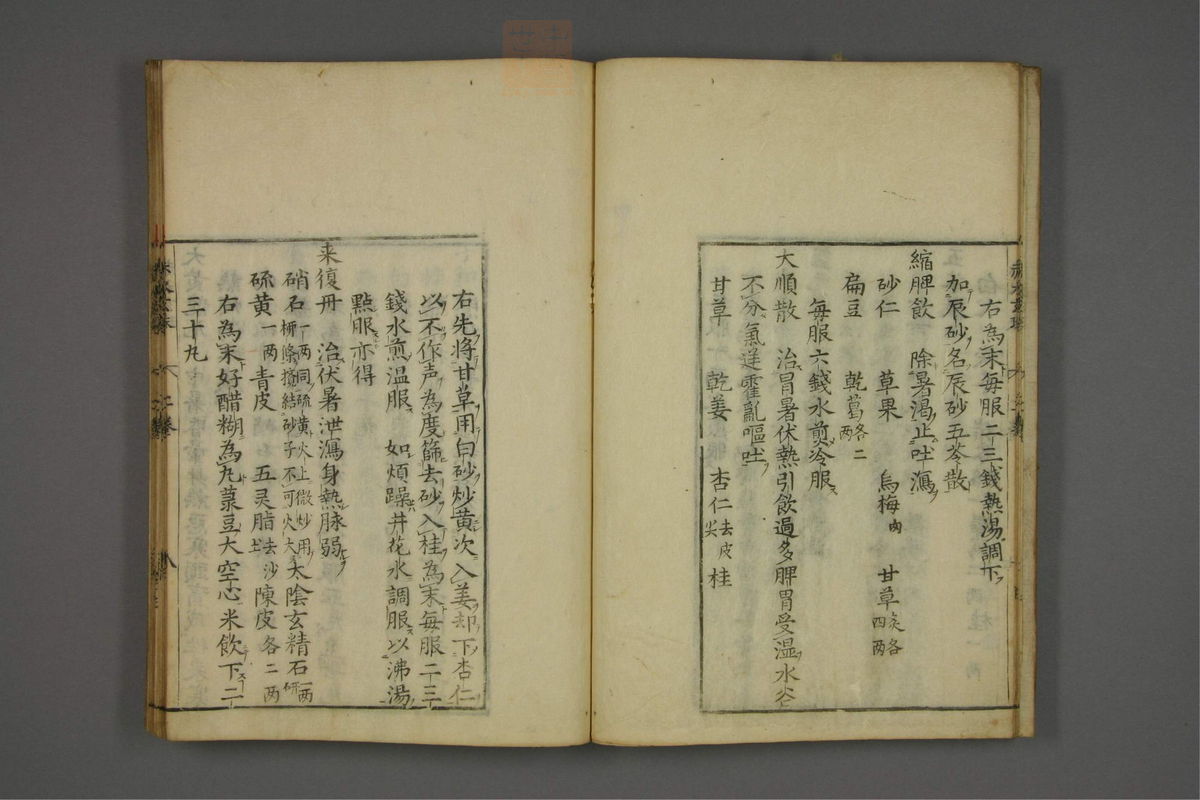 右為末毎服二三錢熱湯調下
加辰砂名辰砂五苓散
縮脾飲　除暑渇止吐瀉
砂仁　草果　烏梅肉　甘草炙各四兩
扁豆　乾葛各二兩
毎服六錢水煎冷服
大順散　治冒暑伏熱引飲過多脾胃受湿水谷
不分氣逆霍亂嘔吐
甘草　乾姜　杏仁去皮尖　桂
右先將甘草用白砂炒黄次入姜却下杏仁
以不作声為度篩去砂入桂為末毎服二三
錢水煎温服　如煩躁井花水調服以沸湯
點服亦得
来復丹　治伏暑泄瀉身熱脉弱
硝石一兩同硫黄火上微炒用柳條攪結砂子不可火大　太陰玄精石一兩研
硫黄一兩　青皮　五灵脂去沙土　陳皮各二兩
右為末好醋糊為丸菉豆大空心米飲下二
三十丸
二巻
八